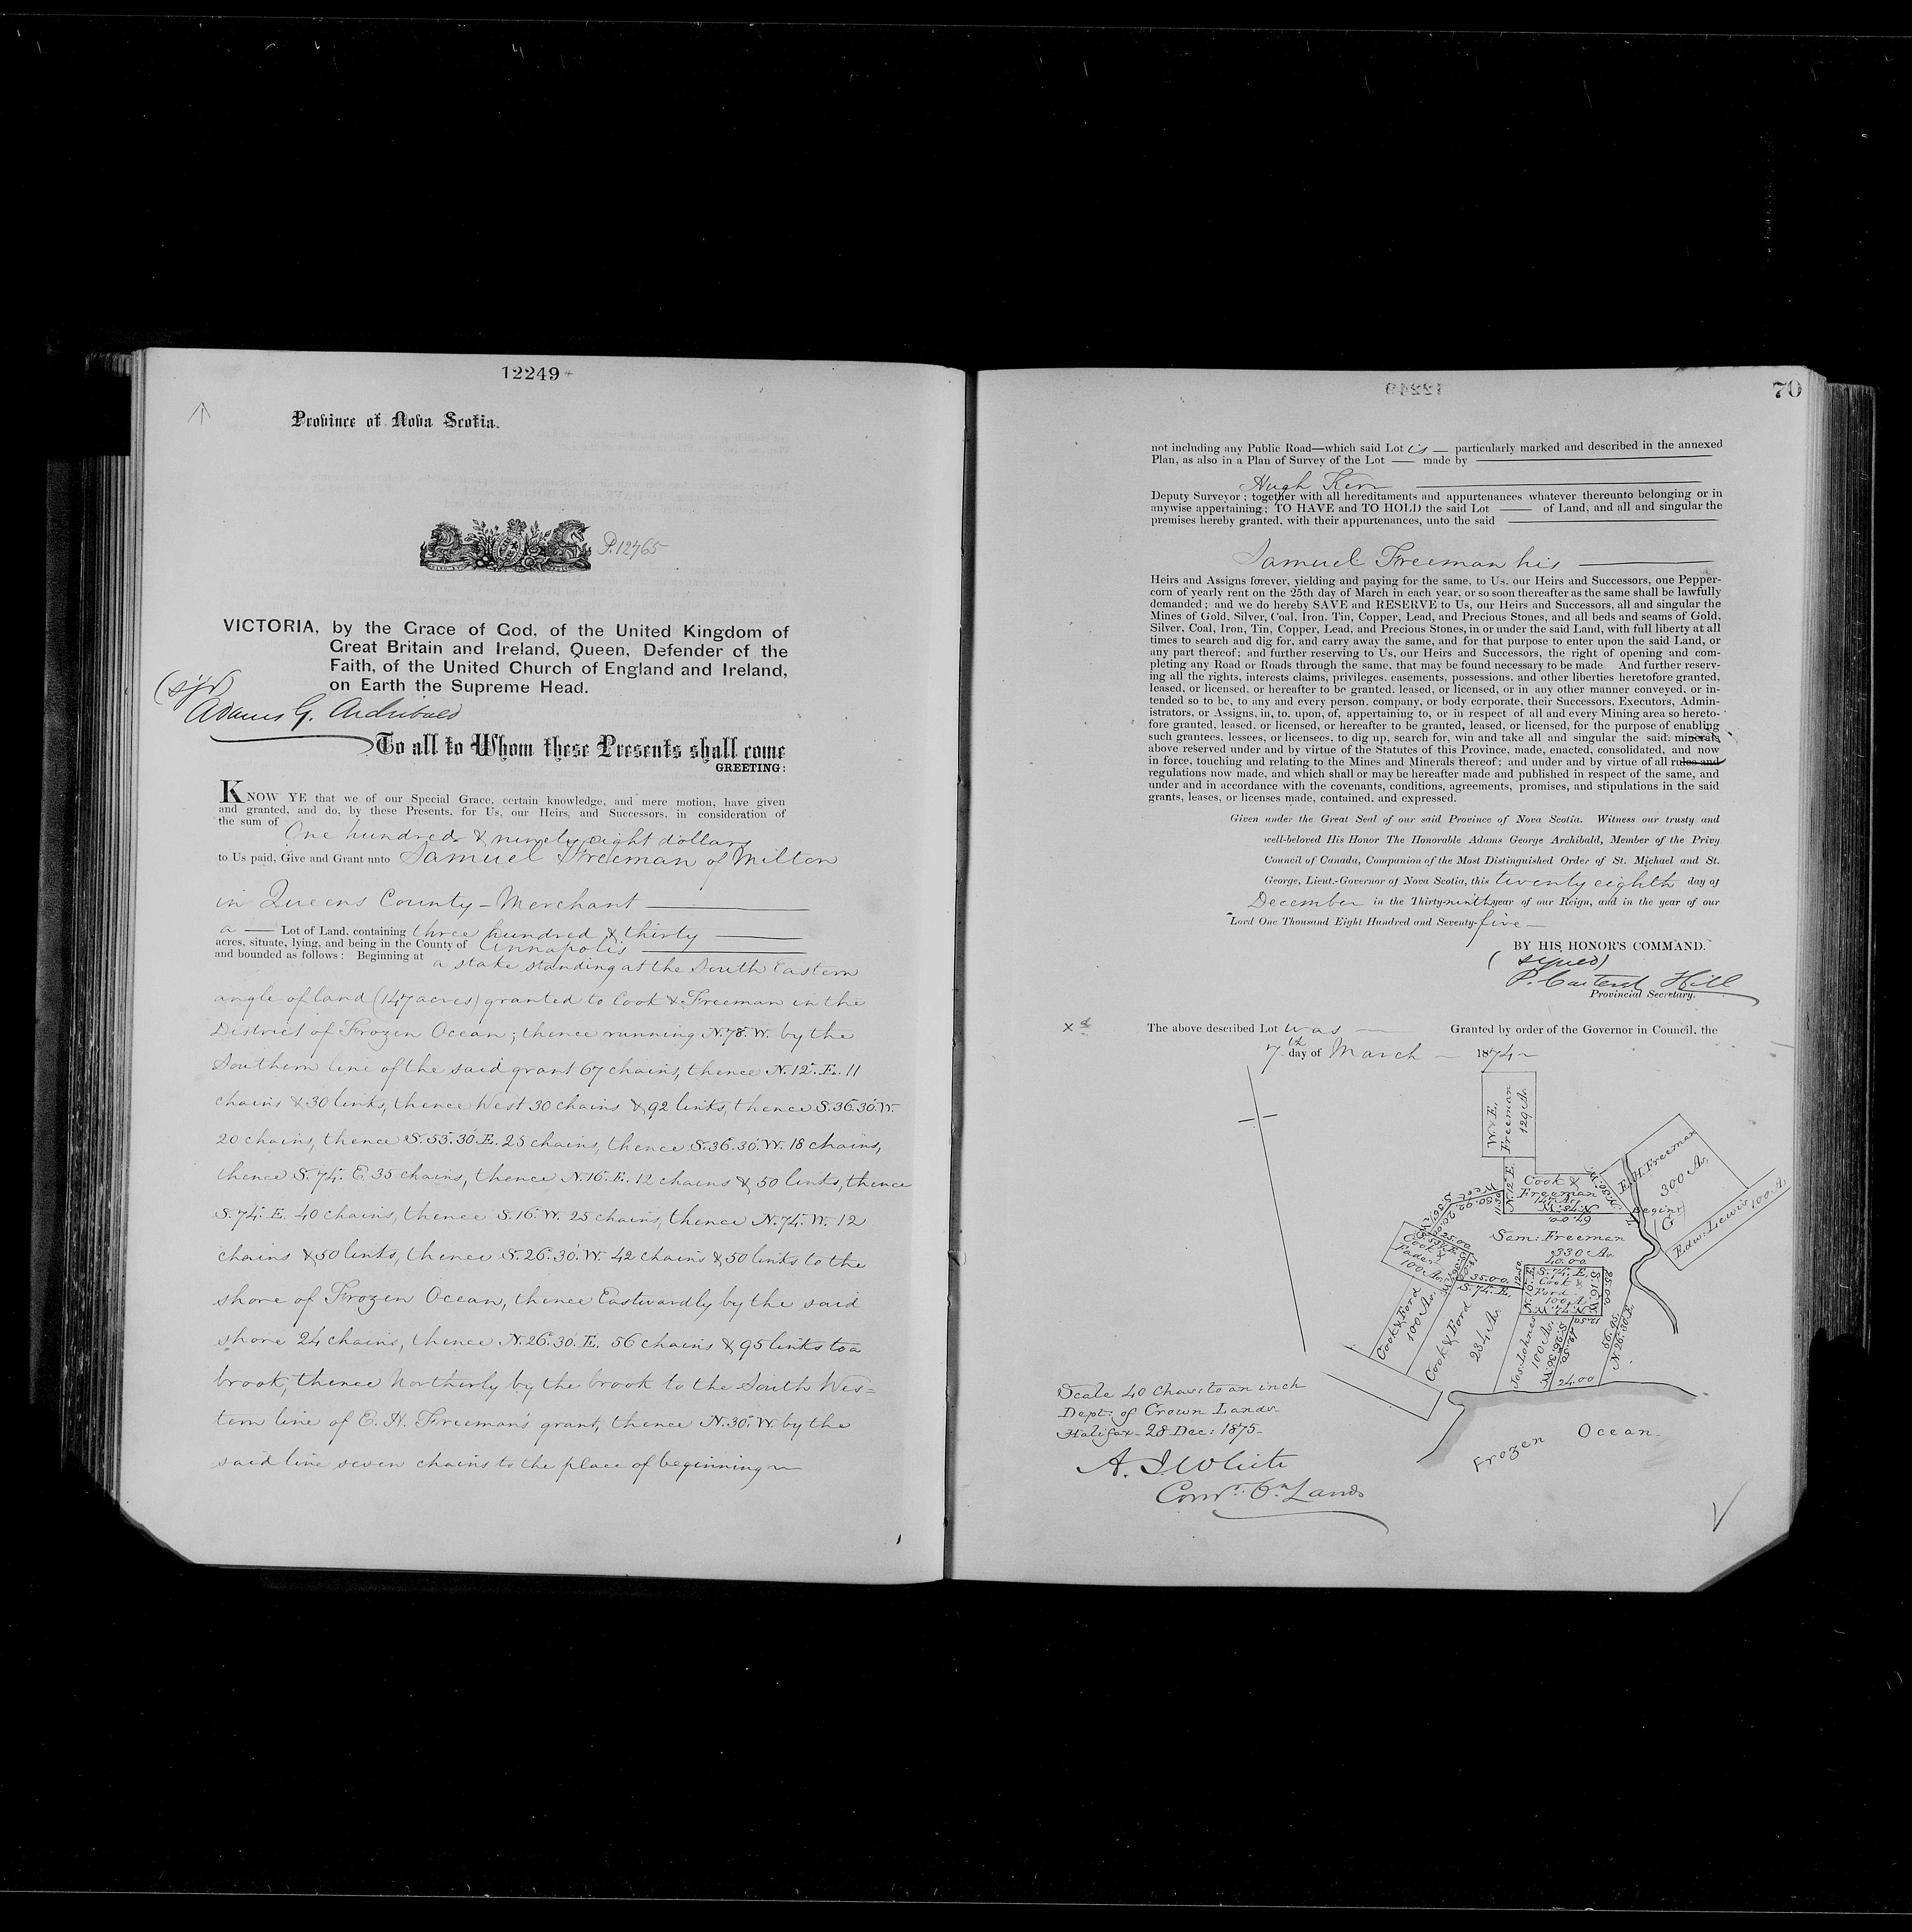 12249
Province of Nova Scotia.
P. 12465
VICTORIA, by the Grace of God, of the United Kingdom of
Great Britain and Ireland, Queen, Defender of the
Faith, of the United Church of England and Ireland,
on Earth the Supreme Head.
(sgd)
Adams G. Archibald
To all to Whom these Presents shall come
GREETING:
KNOW YE that we of our Special Grace, certain knowledge, and mere motion, have given
and granted, and do, by these Presents, for Us, our Heirs, and Successors, in consideration of
the sum of One hundred & ninety eight dollars
to Us paid, Give and Grant unto Samuel Freeman of Milton
in Queens County - Merchant
a Lot of Land, containing three hundred & thirty
acres, situate, lying, and being in the County of Annapolis
and bounded as follows: Beginning at a stake standing at the South Eastern
angle of land (147 acres) granted to Cook & Freeman in the
District of Frozen Ocean; thence running N. 78°. W. by the
Southern line of the said grant 67 chains, thence N. 12°. E. 11
chains & 30 links, thence West 30 chains & 92 links, thence S. 36°. 30'. W.
20 chains, thence S. 53°. 30'. E. 25 chains, thence S. 36°. 30'. W. 18 chains,
thence S. 74°. E. 35 chains, thence N. 16°. E. 12 chains & 50 links, thence
S. 74°. E. 40 chains, thence S. 16°. W. 25 chains, thence N. 74°. W. 12
chains & 50 links, thence S. 26°. 30'. W. 42 chains & 50 links to the
shore of Frozen Ocean, thence Eastwardly by the said
shore 24 chains, thence N. 26°. 30'. E. 56 chains & 95 links to a
brook, thence Northerly by the brook to the South Wes=
tern line of E. H. Freeman's grant, thence N. 30°. W. by the
said line seven chains to the place of beginning
70
not including any Public Road—which said Lot is — particularly marked and described in the annexed
Plan, as also in a Plan of Survey of the Lot — made by
Hugh Kerr
Deputy Surveyor; together with all hereditaments and appurtenances whatever thereunto belonging or in
anywise appertaining; TO HAVE and TO HOLD the said Lot — of Land, and all and singular the
premises hereby granted, with their appurtenances, unto the said
Samuel Freeman his
Heirs and Assigns forever, yielding and paying for the same, to Us, our Heirs and Successors, one Pepper-
corn of yearly rent on the 25th day of March in each year, or so soon thereafter as the same shall be lawfully
demanded; and we do hereby SAVE and RESERVE to Us, our Heirs and Successors, all and singular the
Mines of Gold, Silver, Coal, Iron, Tin, Copper, Lead, and Precious Stones, and all beds and seams of Gold,
Silver, Coal, Iron, Tin, Copper, Lead, and Precious Stones, in or under the said Land, with full liberty at all
times to search and dig for, and carry away the same, and for that purpose to enter upon the said Land, or
any part thereof; and further reserving to Us, our Heirs and Successors, the right of opening and com-
pleting any Road or Roads through the same, that may be found necessary to be made And further reserv-
ing all the rights, interests claims, privileges, easements, possessions, and other liberties heretofore granted,
leased, or licensed, or hereafter to be granted, leased, or licensed, or in any other manner conveyed, or in-
tended so to be, to any and every person, company, or body corporate, their Successors, Executors, Admin-
istrators, or Assigns, in, to, upon, of, appertaining to, or in respect of all and every Mining area so hereto-
fore granted, leased, or licensed, or hereafter to be granted, leased, or licensed, for the purpose of enabling
such grantees, lessees, or licensees, to dig up, search for, win and take all and singular the said minerals
above reserved under and by virtue of the Statutes of this Province, made, enacted, consolidated, and now
in force, touching and relating to the Mines and Minerals thereof; and under and by virtue of all rules and
regulations now made, and which shall or may be hereafter made and published in respect of the same, and
under and in accordance with the covenants, conditions, agreements, promises, and stipulations in the said
grants, leases, or licenses made, contained, and expressed.
Given under the Great Seal of our said Province of Nova Scotia. Witness our trusty and
well-beloved His Honor The Honorable Adams George Archibald, Member of the Privy
Council of Canada, Companion of the Most Distinguished Order of St. Michael and St.
George, Lieut.-Governor of Nova Scotia, this twenty eighth day of
December in the Thirty-ninth year of our Reign, and in the year of our
Lord One Thousand Eight Hundred and Seventy-five
BY HIS HONOR'S COMMAND.
(signed)
P. Carteret Hill
Provincial Secretary.
The above described Lot was Granted by order of the Governor in Council, the
7th day of March 1874
W. & E.
Freeman
129 A.
E. H. Freeman
300 A.
Cook &
Freeman
147 A.
N. 78. W.
67.00.
N. 12. E.
11.30
West
30.92
N. 30. W.
Begins
G
Edw: Lewis 100 A.
Sam: Freeman
330 A.
40.00
S. 74. E.
Cook &
Ford
100 A.
N. 74. W.
12.50
N. 16. E.
12.50
S. 16. W.
25.00
Cook &
Fader
100 A.
25.00
35.00
S. 74. E.
Cook & Ford
100 A.
Cook & Ford
234 A.
Jos: Lohnes
100 A.
S. 26. 30. W.
42.50
56.95
N. 26. 30. E.
24.00
Frozen Ocean
Scale 40 Chains to an inch
Dept: of Crown Lands
Halifax 28 Dec: 1875
A. J. White
Comr. Cn. Lands